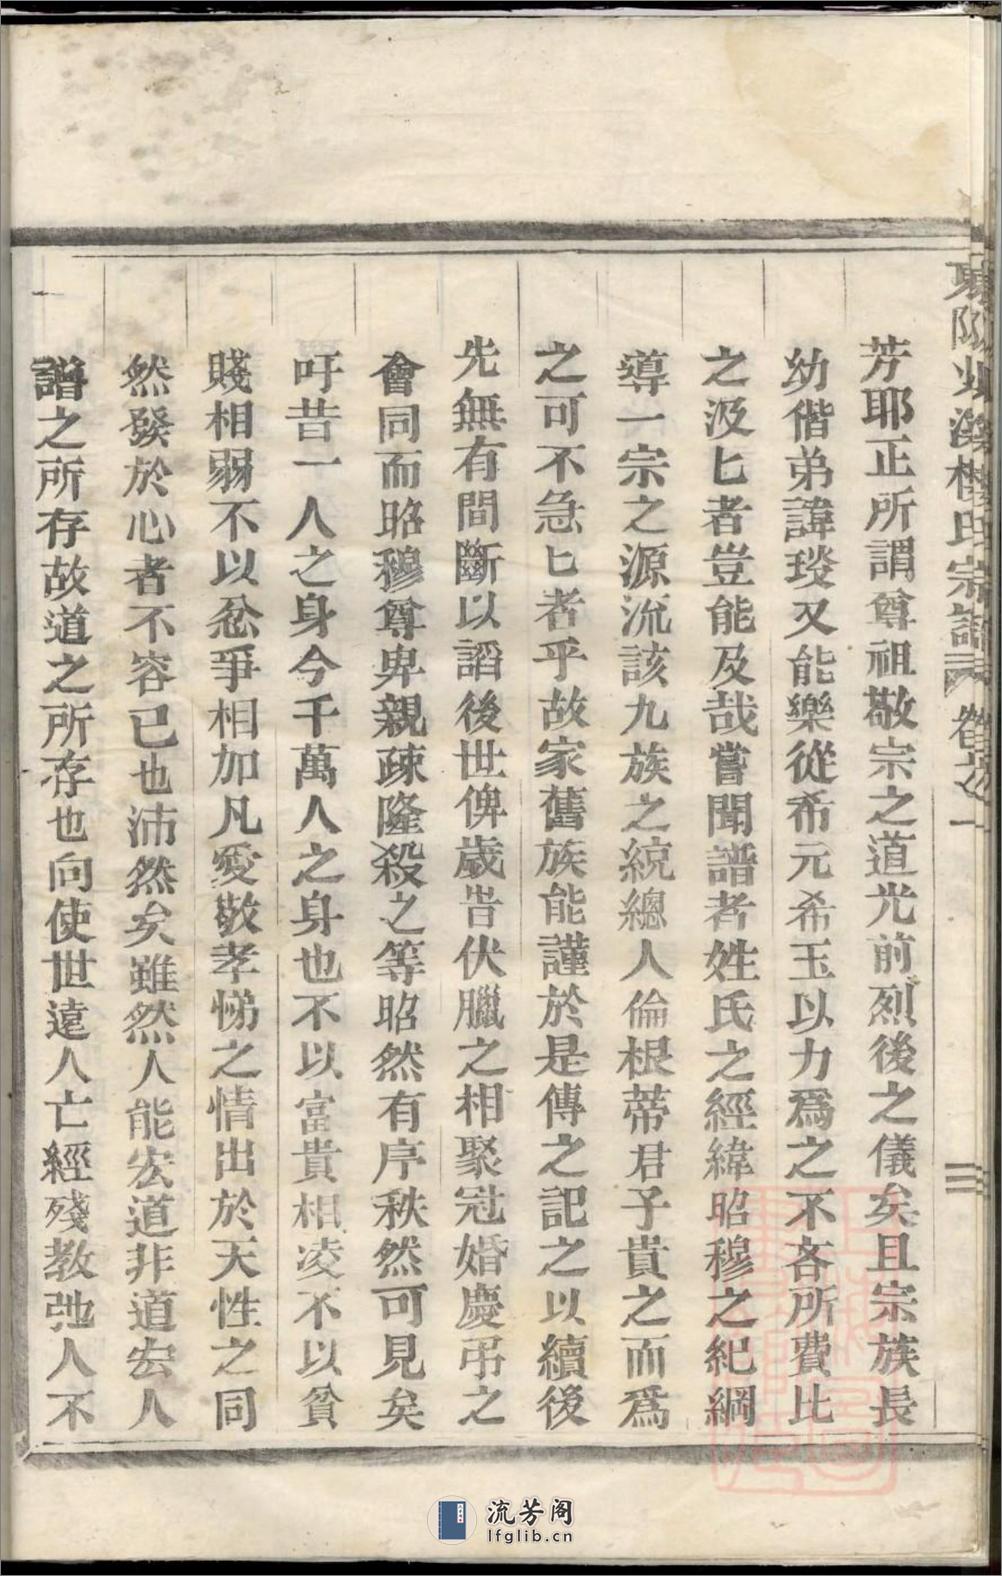 芳耶正所謂尊祖敬宗之道光前烈後之儀矣且宗族長
幼偕弟諱琰又能樂從希元希玉以力爲之不吝所費比
之汲匕者豈能及哉嘗聞譜者姓氏之經緯昭穆之紀綱
導一宗之源流該九族之統總人倫根蒂君子貴之而爲
之可不急匕者乎故家舊族能謹於是傳之記之以續後
先無有間斷以謟後世俾歲告伏臘之相聚冠婚慶弔之
會同而昭穆尊卑親疎隆殺之等昭然有序秩然可見矣
吁昔一人之身今千萬人之身也不以富貴相凌不以貧
賤相弱不以忿爭相加凡愛敬孝悌之情出於天性之同
然發於心者不容已也沛然矣雖然人能宏道非道宏人
譜之所存故道之所存也向使世遠人亡經殘教弛人不
流芳阁
lfglib.cn